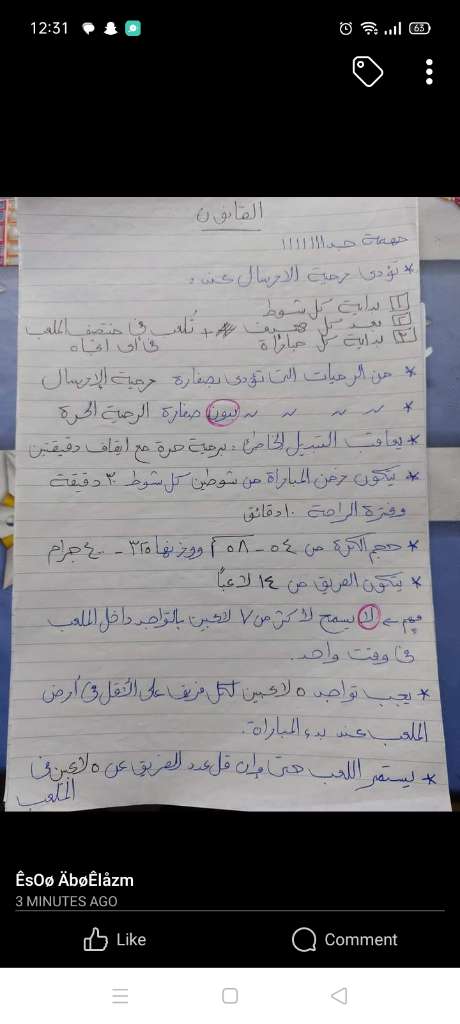 12:31
63
القانون
مهمة جداااااااا
* تؤدى رمية الارسال عند :
١ بداية كل شوط
٢ بعد كل هدف + تُلعب فى منتصف الملعب
٣ بداية كل مباراة فى أى اتجاه
* من الرميات التى تؤدى بصفارة رمية الإرسال
* ~ ~ ~ ~ بدون صفارة الرمية الحرة
* يعاقب التبديل الخاطئ : برمية حرة مع إيقاف دقيقتين
* يتكون زمن المباراة من شوطين كل شوط ٣٠ دقيقة
وفترة الراحة ١٠ دقائق
* حجم الكرة من ٥٤ - ٥٨ ووزنها ٣٢٥ - ٤٠٠ جرام
* يتكون الفريق من ١٤ لاعباً
مهم لا يسمح لاكثر من ٧ لاعبين بالتواجد داخل الملعب
فى وقت واحد.
* يجب تواجد ٥ لاعبين لكل فريق على الأقل فى أرض
الملعب عند بدء المباراة.
* يستمر اللعب حتى وإن قل عدد الفريق عن ٥ لاعبين فى
الملعب
ÊsOø ÄbøÊlåzm
3 MINUTES AGO
Like
Comment